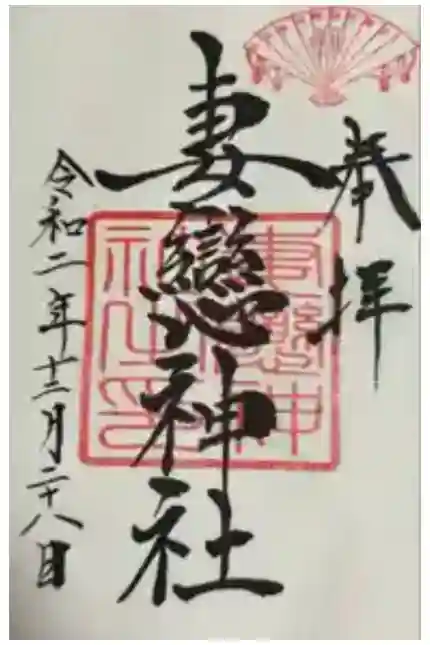 奉拝
妻戀神社
妻戀神
社之印
令和二年十二月二十八日